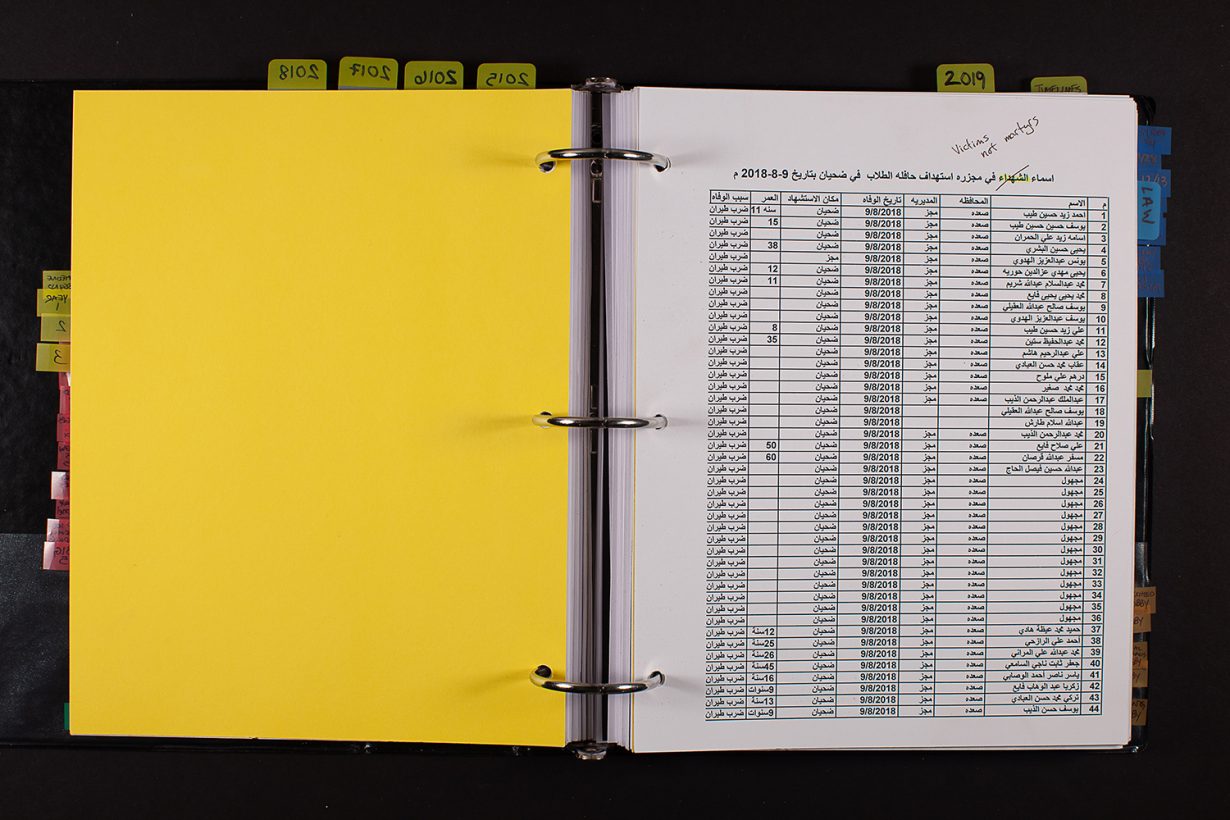 2018
2017
2016
2015
2019
TIMELINES
YEAR
1
2
3
LAW
Victims
not martyrs
اسماء الشهداء في مجزره استهداف حافله الطلاب في ضحيان بتاريخ 9-8-2018 م
م الاسم المحافظه المديريه تاريخ الوفاه مكان الاستشهاد العمر سبب الوفاه
1 احمد زيد حسين طيب صعده مجز 9/8/2018 ضحيان 11 سنه ضرب طيران
2 يوسف حسين حسين طيب صعده مجز 9/8/2018 ضحيان 15 ضرب طيران
3 اسامه زيد علي الحمران صعده مجز 9/8/2018 ضحيان ضرب طيران
4 يحيى حسين البشري صعده مجز 9/8/2018 ضحيان 38 ضرب طيران
5 يونس عبدالعزيز الهدوي صعده مجز 9/8/2018 مجز ضرب طيران
6 يحيى مهدي عزالدين حوريه صعده مجز 9/8/2018 ضحيان 12 ضرب طيران
7 محمد عبدالسلام عبدالله شريم صعده مجز 9/8/2018 ضحيان 11 ضرب طيران
8 محمد يحيى يحيى فايع صعده مجز 9/8/2018 ضحيان ضرب طيران
9 يوسف صالح عبدالله العقيلي صعده مجز 9/8/2018 ضحيان ضرب طيران
10 يوسف عبدالعزيز الهدوي صعده مجز 9/8/2018 ضحيان ضرب طيران
11 علي زيد حسين طيب صعده مجز 9/8/2018 ضحيان 8 ضرب طيران
12 محمد عبدالحفيظ ستين صعده مجز 9/8/2018 ضحيان 35 ضرب طيران
13 علي عبدالرحيم هاشم صعده مجز 9/8/2018 ضحيان ضرب طيران
14 عقاب محمد حسن العبادي صعده مجز 9/8/2018 ضحيان ضرب طيران
15 درهم علي ملوح صعده مجز 9/8/2018 ضحيان ضرب طيران
16 محمد محمد صغير صعده مجز 9/8/2018 ضحيان ضرب طيران
17 عبدالملك عبدالرحمن الذيب صعده مجز 9/8/2018 ضحيان ضرب طيران
18 يوسف صالح عبدالله العقيلي 9/8/2018 ضحيان ضرب طيران
19 عبدالله اسلام طارش 9/8/2018 ضحيان ضرب طيران
20 محمد عبدالرحمن الذيب صعده مجز 9/8/2018 ضحيان ضرب طيران
21 علي صلاح فايع صعده مجز 9/8/2018 ضحيان 50 ضرب طيران
22 مسفر عبدالله قرصان صعده مجز 9/8/2018 ضحيان 60 ضرب طيران
23 عبدالله حسين فيصل الحاج صعده مجز 9/8/2018 ضحيان ضرب طيران
24 مجهول صعده مجز 9/8/2018 ضحيان ضرب طيران
25 مجهول صعده مجز 9/8/2018 ضحيان ضرب طيران
26 مجهول صعده مجز 9/8/2018 ضحيان ضرب طيران
27 مجهول صعده مجز 9/8/2018 ضحيان ضرب طيران
28 مجهول صعده مجز 9/8/2018 ضحيان ضرب طيران
29 مجهول صعده مجز 9/8/2018 ضحيان ضرب طيران
30 مجهول صعده مجز 9/8/2018 ضحيان ضرب طيران
31 مجهول صعده مجز 9/8/2018 ضحيان ضرب طيران
32 مجهول صعده مجز 9/8/2018 ضحيان ضرب طيران
33 مجهول صعده مجز 9/8/2018 ضحيان ضرب طيران
34 مجهول صعده مجز 9/8/2018 ضحيان ضرب طيران
35 مجهول صعده مجز 9/8/2018 ضحيان ضرب طيران
36 مجهول صعده مجز 9/8/2018 ضحيان ضرب طيران
37 حميد محمد عيظة هادي صعده مجز 9/8/2018 ضحيان 12سنة ضرب طيران
38 أحمد علي الرازحي صعده مجز 9/8/2018 ضحيان 25سنة ضرب طيران
39 محمد عبدالله علي المراني صعده مجز 9/8/2018 ضحيان 26سنة ضرب طيران
40 جعفر ثابت ناجي السامعي صعده مجز 9/8/2018 ضحيان 45سنة ضرب طيران
41 ياسر ناصر أحمد الوصابي صعده مجز 9/8/2018 ضحيان 16سنة ضرب طيران
42 زكريا عبد الوهاب فايع صعده مجز 9/8/2018 ضحيان 9سنوات ضرب طيران
43 تركي محمد حسن العبادي صعده مجز 9/8/2018 ضحيان 13سنة ضرب طيران
44 يوسف حسن الذيب صعده مجز 9/8/2018 ضحيان 9سنوات ضرب طيران